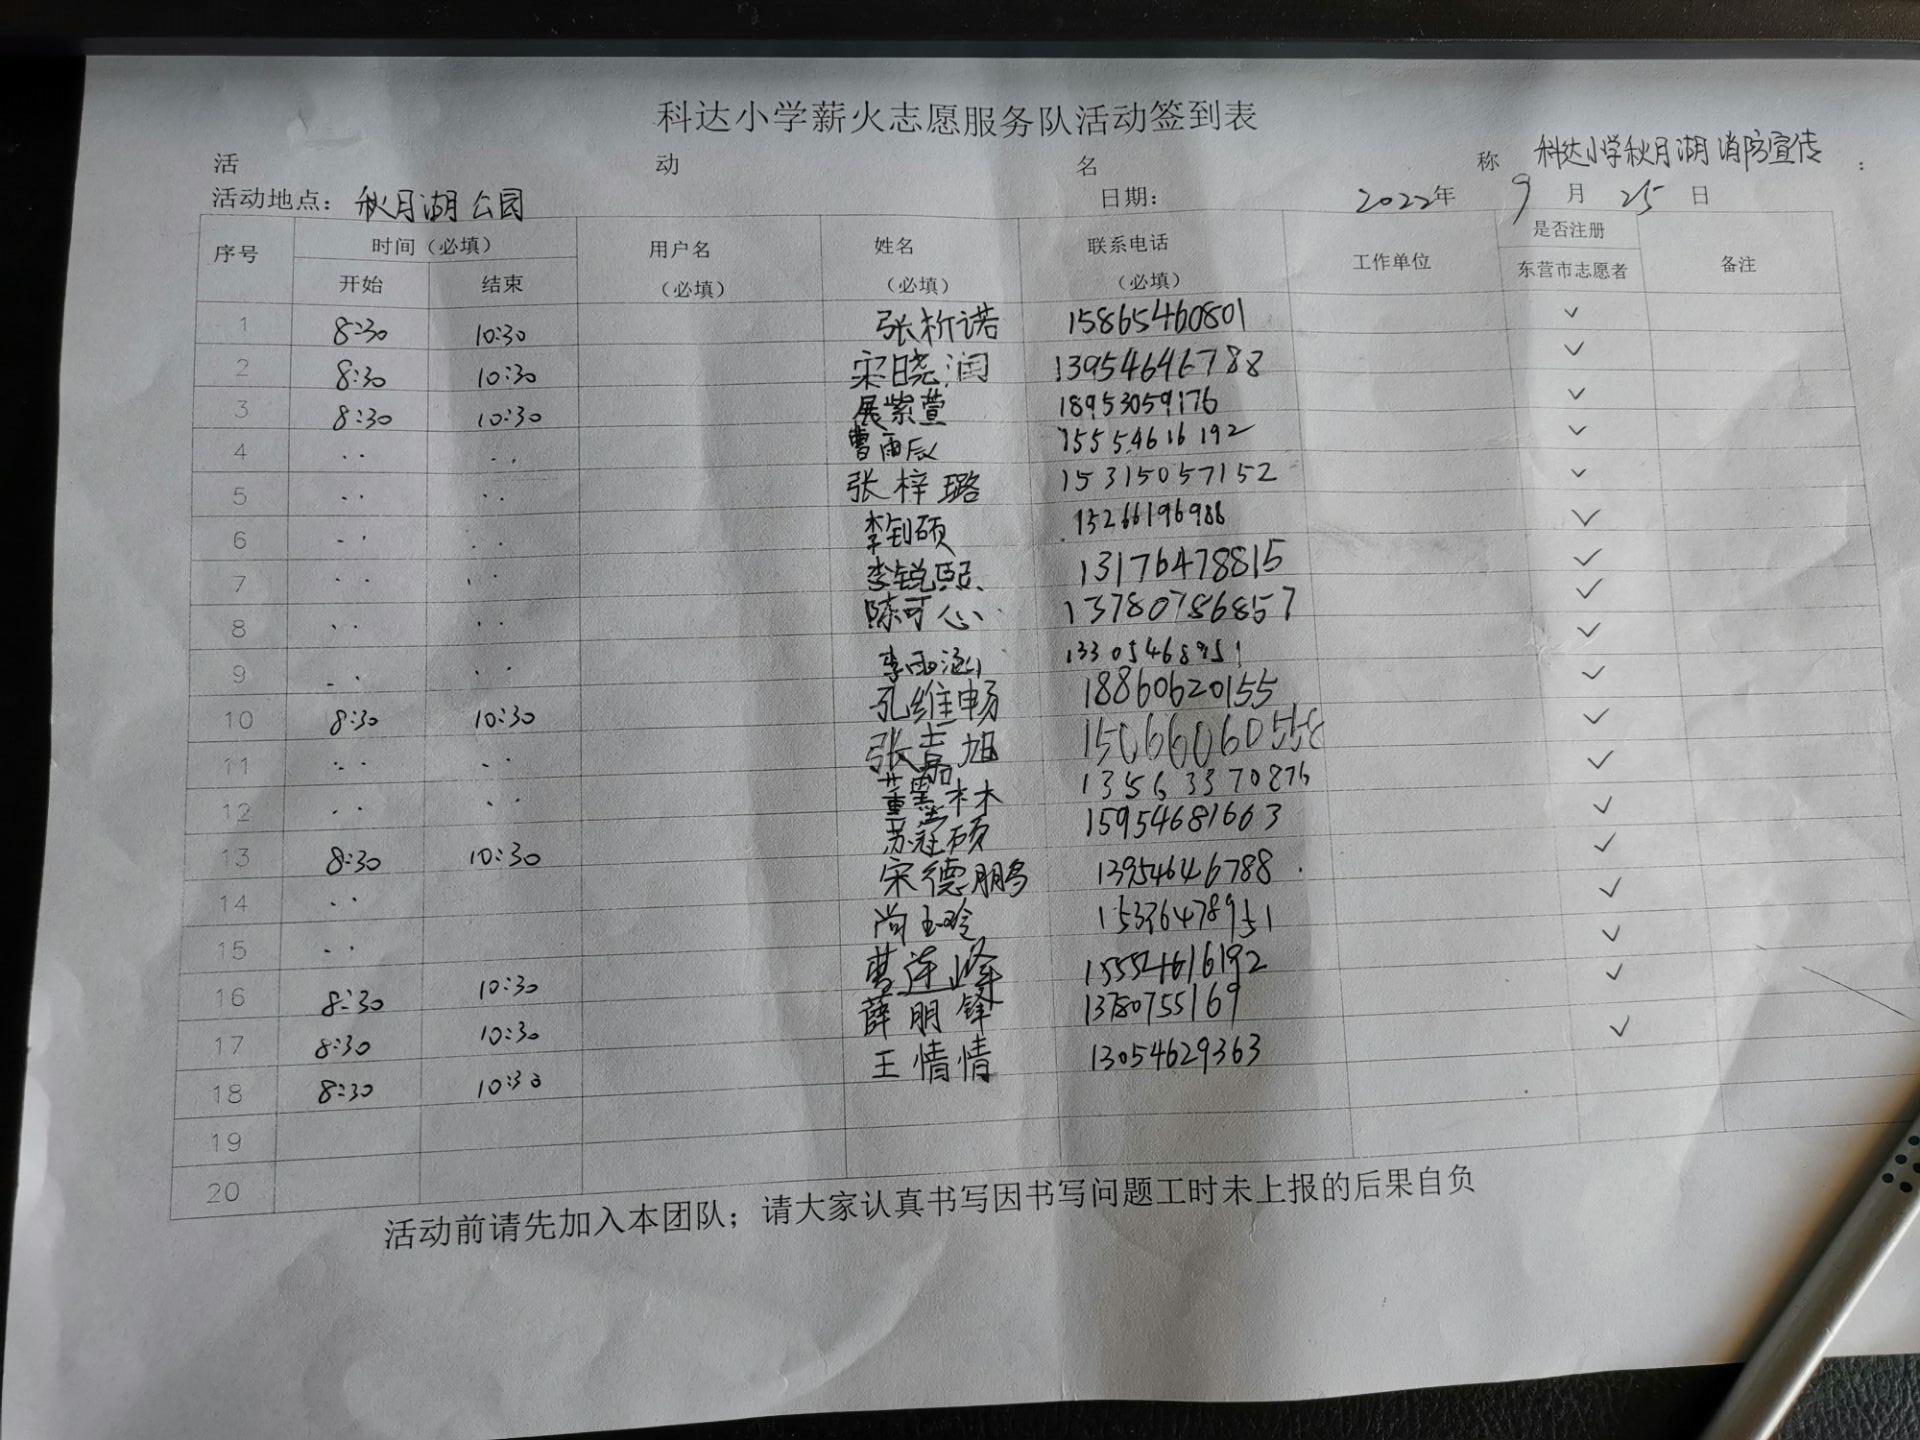 科达小学薪火志愿服务队活动签到表
活 动 名 称 科达小学秋月湖消防宣传 :
活动地点: 秋月湖公园 日期: 2022年 9 月 25 日
序号 时间(必填) 用户名 姓名 联系电话 工作单位 是否注册 备注
开始 结束 (必填) (必填) (必填) 东营市志愿者
1 8:30 10:30 张析诺 15865460801 ✓
2 8:30 10:30 宋晓润 13954646788 ✓
3 8:30 10:30 展紫萱 18953059176 ✓
4 .. .. 曹雨辰 15554616192 ✓
5 .. .. 张梓璐 15315057152 ✓
6 .. .. 李钊硕 15266196988 ✓
7 .. .. 李锐熙 13176478815 ✓
8 .. .. 陈可心 13780786857 ✓
9 .. .. 李雨涵 13305468951 ✓
10 8:30 10:30 孔维畅 18860620155 ✓
11 .. .. 张嘉旭 15066060558 ✓
12 .. .. 董墨林 13563370876 ✓
13 8:30 10:30 苏冠硕 15954681663 ✓
14 .. 宋德鹏 13954646788 ✓
15 .. 尚玉玲 15336478951 ✓
16 8:30 10:30 曹连峰 15554616192 ✓
17 8:30 10:30 薛朋锋 13780755169 ✓
18 8:30 10:30 王情情 13054629363 ✓
19
20
活动前请先加入本团队；请大家认真书写因书写问题工时未上报的后果自负